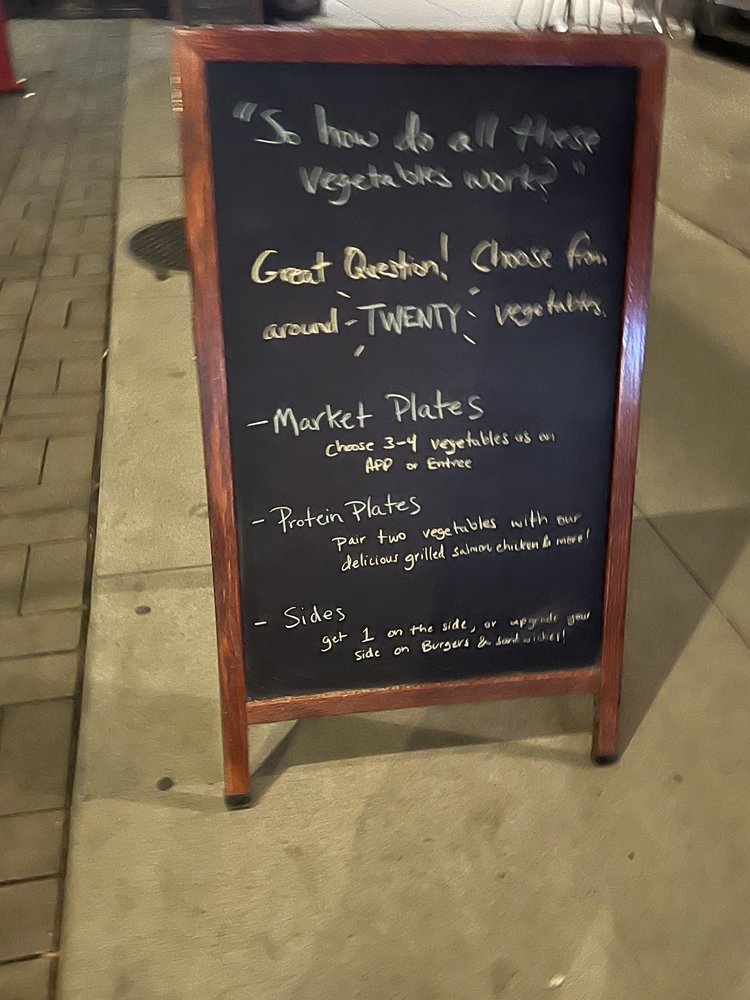 "So how do all these
vegetables work?"
Great Question! Choose from
around - TWENTY - vegetables.
- Market Plates
choose 3-4 vegetables as an
APP or Entree
- Protein Plates
pair two vegetables with our
delicious grilled salmon, chicken & more!
- Sides
get 1 on the side, or upgrade your
side on Burgers & sandwiches!